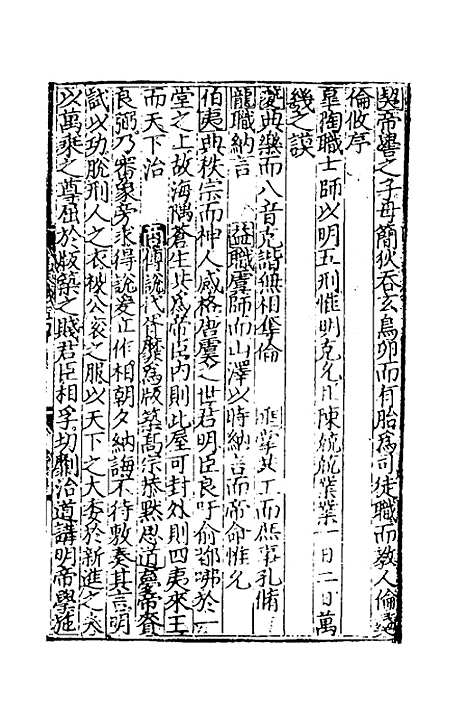 契帝嚳之子母簡狄吞玄鳥卵而有胎爲司徒職而教人倫
倫攸序
皋陶職士師以明五刑惟明克允用陳兢兢業業一日二日萬
幾之謨
夔典樂而八音克諧無相奪倫 垂掌共工而孔脩
龍職納言 益職虞師而山澤以時納言而帝命惟允
伯夷典秩宗而神人咸格唐虞之世君明臣良吁俞咈於一
堂之上故海隅蒼生共爲帝臣內則比屋可封外則四夷來王
而天下治 商傅說代胥靡爲版築高宗恭默思道夢帝賚
良弼乃審象旁求得說爰立作相朝夕納誨不待敷奏其言明
試以功脫刑人之衣被公袞之服以天下之大委於新進之
以萬乘之尊屈於版築之賤君臣相孚切劘治道講明帝學